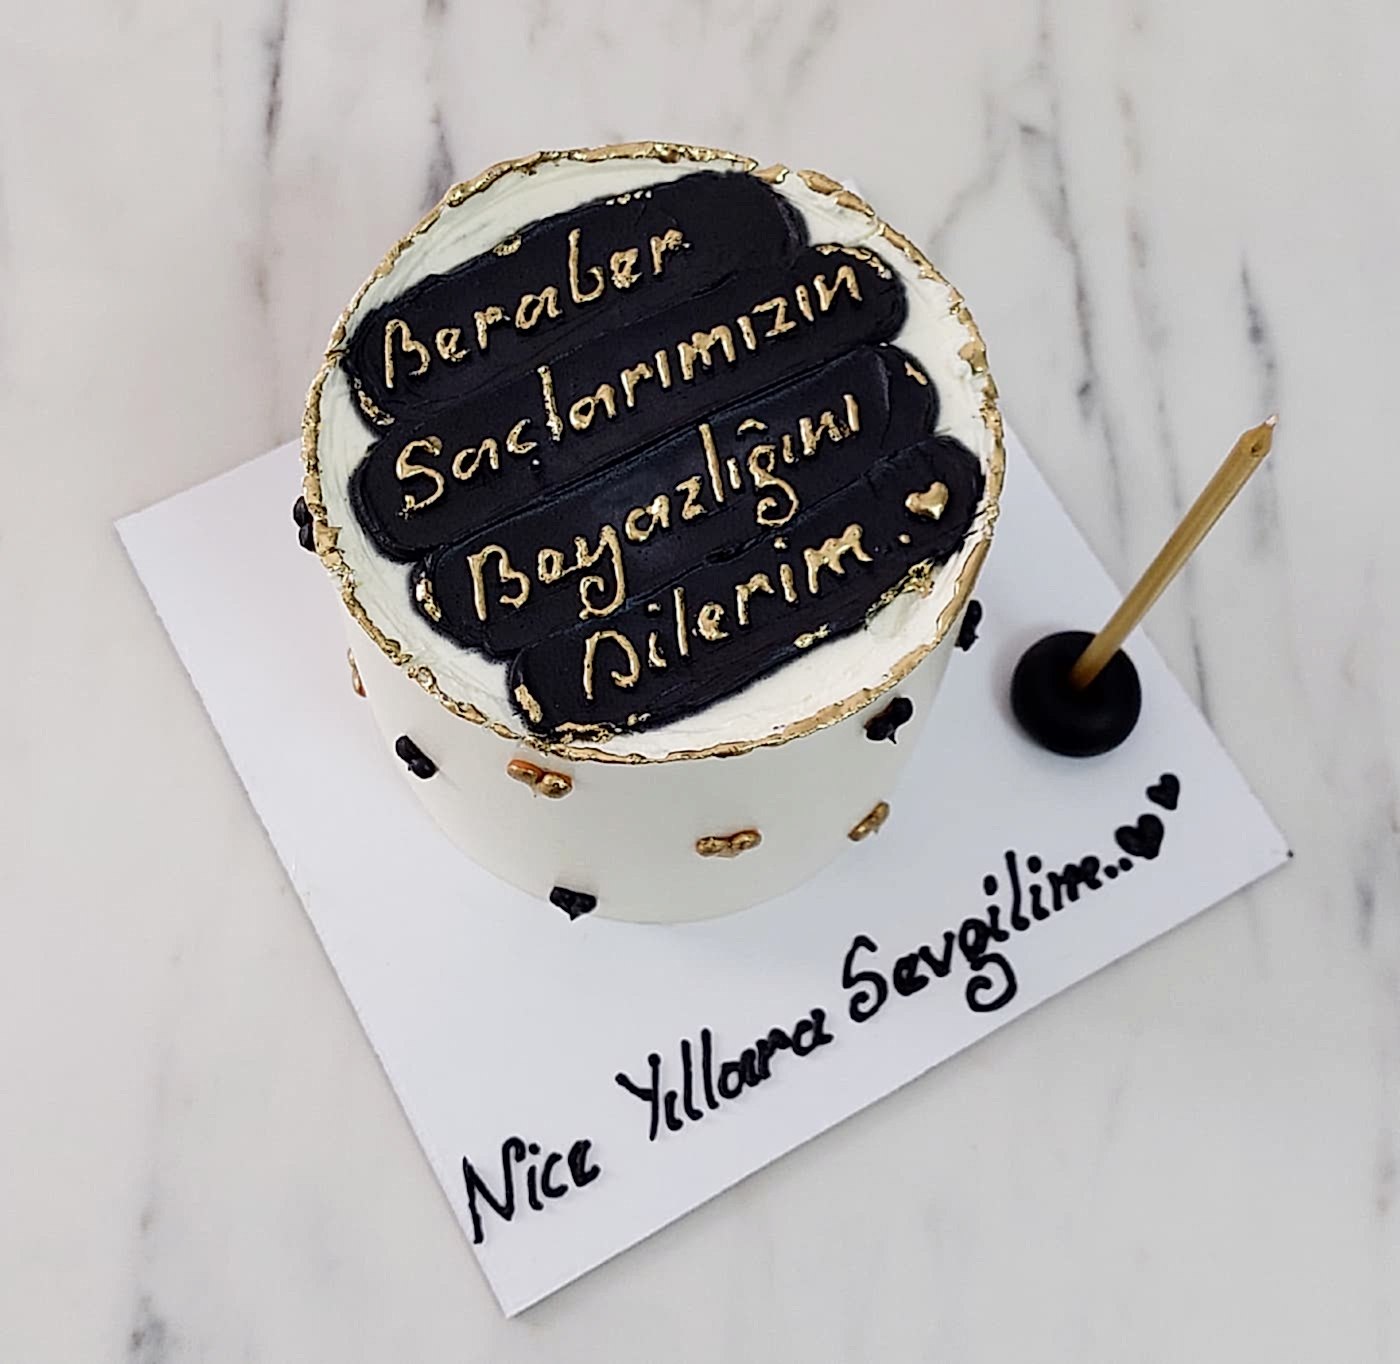 Beraber
Saçlarımızın
Bayazlığını
Dilerim..
Nice Yıllara Sevgilim..